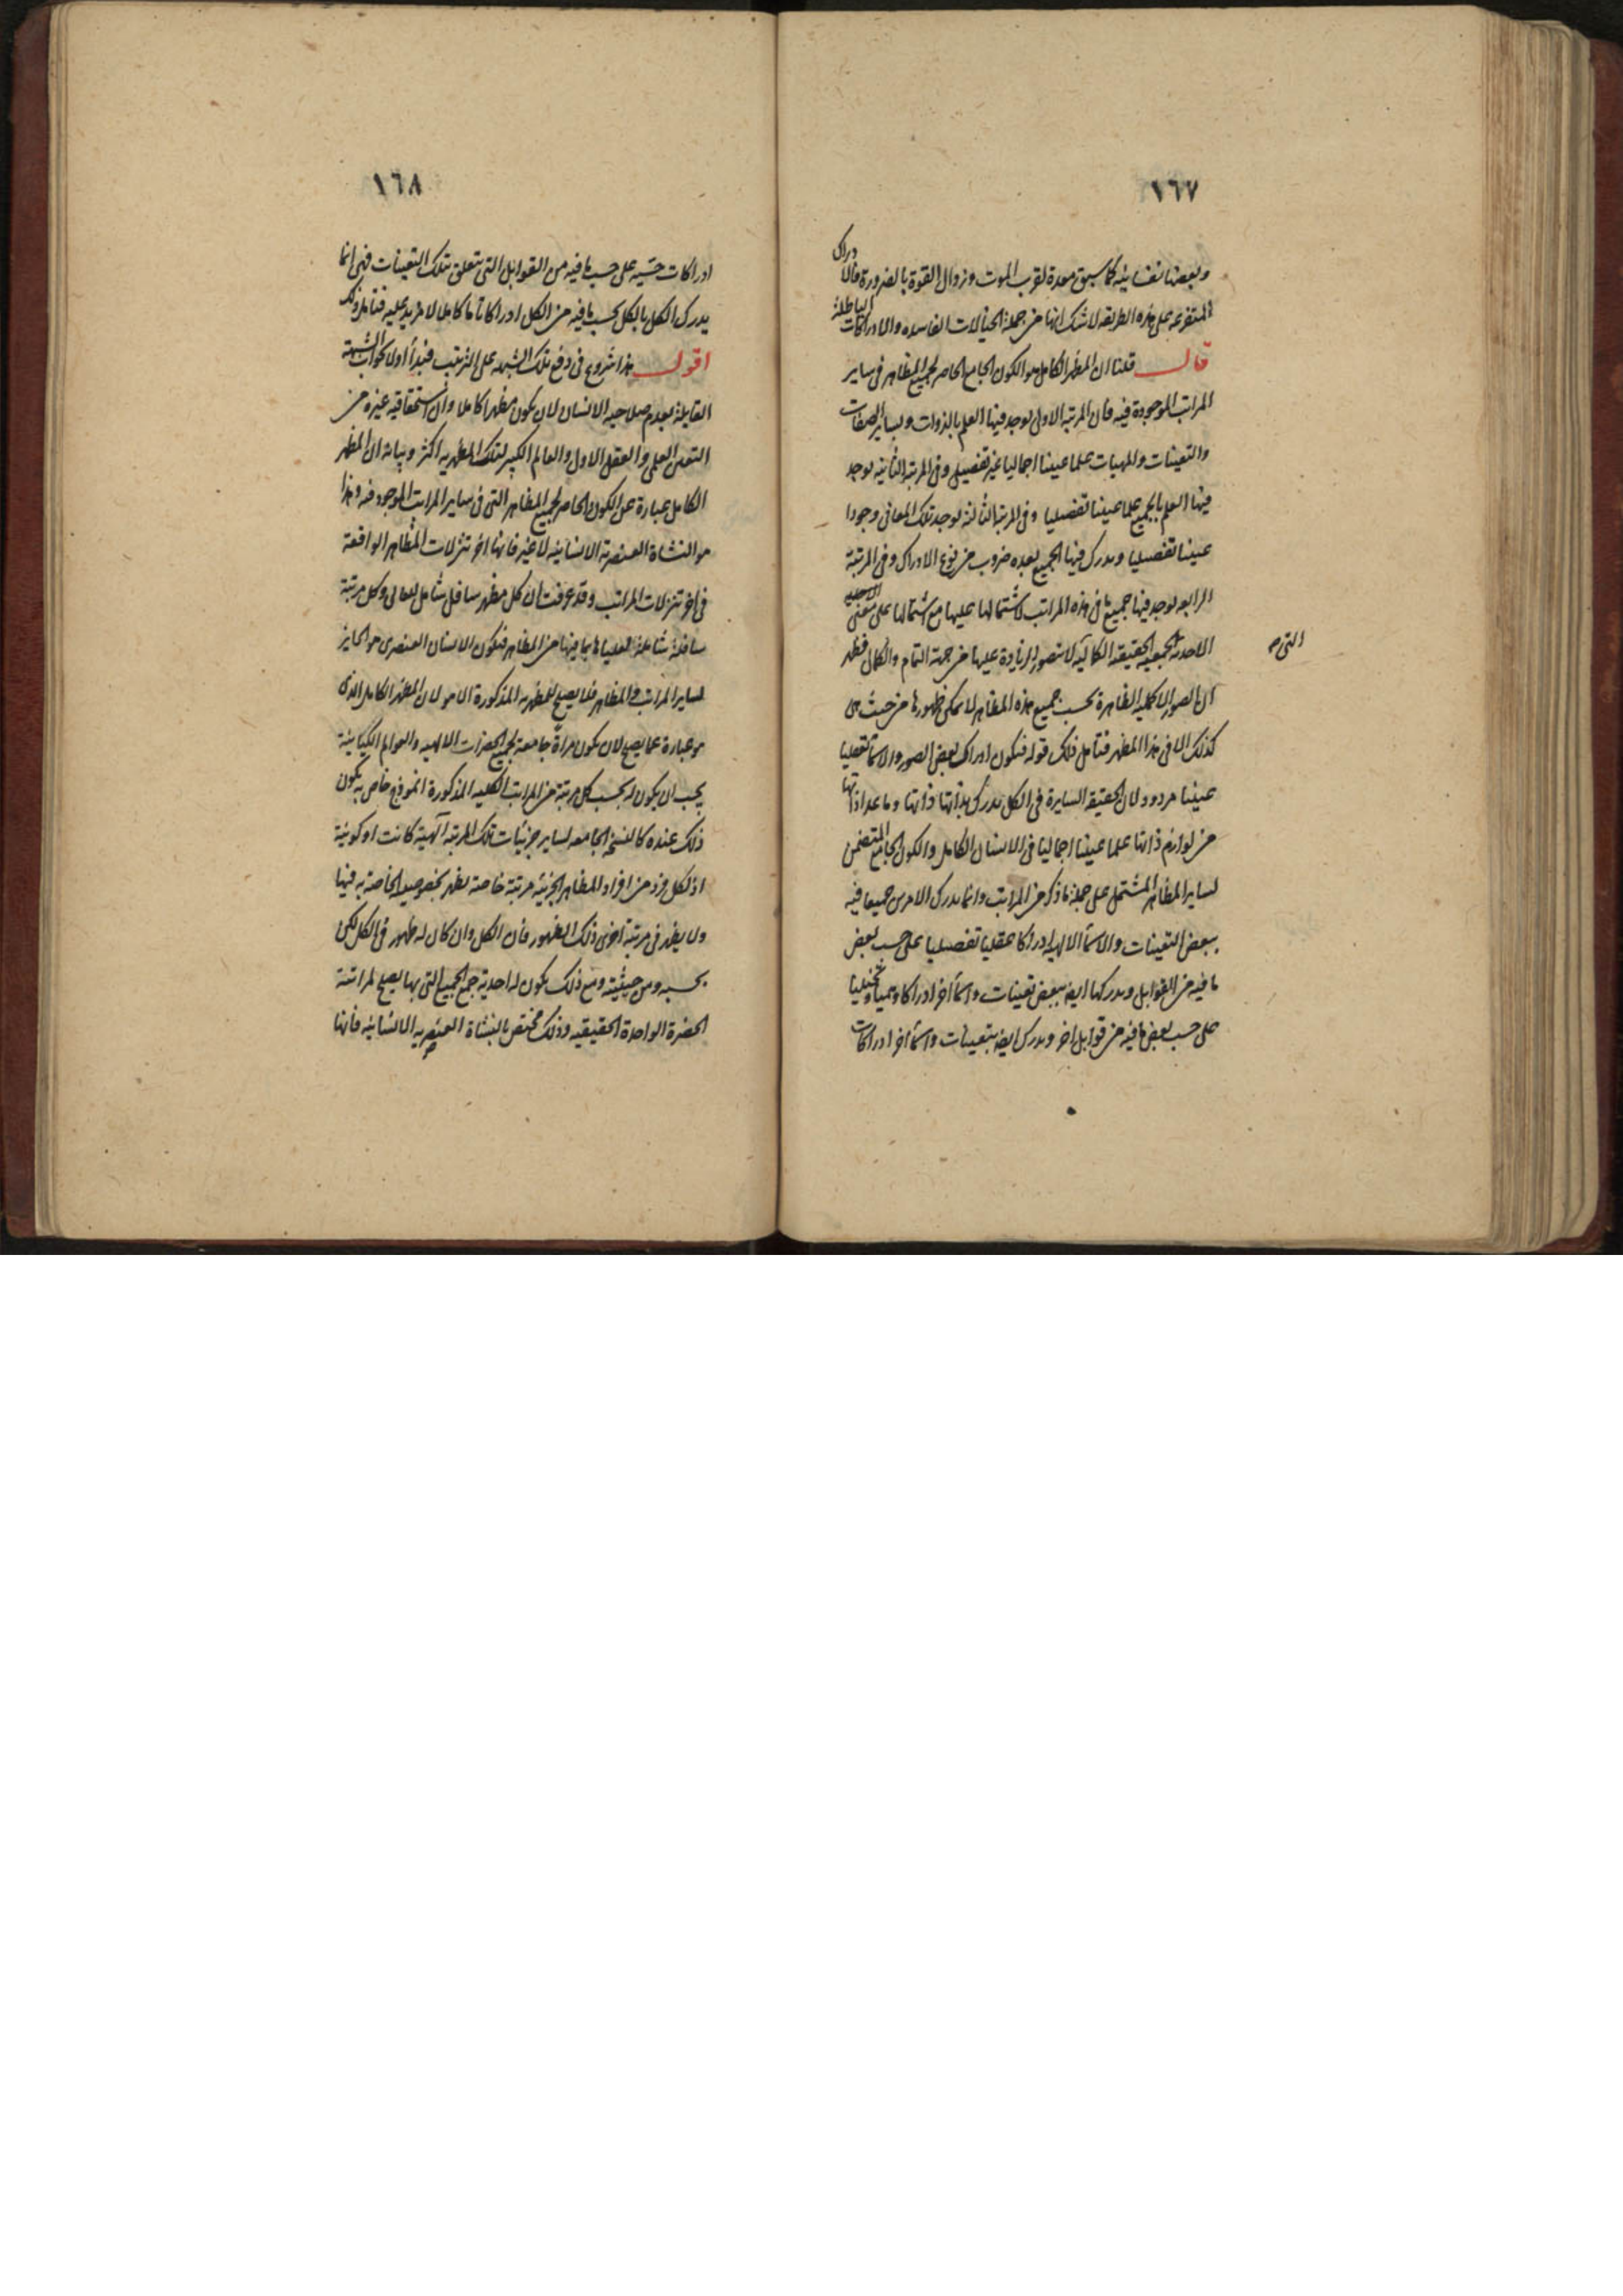 ١٦٧
وبعضها نفسانية كما سبق معدة لقرب الموت وزوال القوة بالضرورة فالادراك
المتفرعة على هذه الطريقه لاشك انها من جملة الخيالات الفاسده والادراكات الباطلة
قال قلنا ان المظهر الكامل هو الكون الجامع الحاصر لجميع المظاهر فى ساير
المراتب الموجودة فيه فان المرتبة الاولى يوجد فيها العلم بالذوات وبساير الصفات
والتعينات والمهيات علما عينيا اجماليا غير تفصيلى وفى المرتبة الثانيه يوجد
فيها العلم بالجميع علما عينيا تفصيليا وفى المرتبة الثالثة يوجد تلك المعانى وجودا
عينيا تفصيليا ويدرك فيها الجميع بعده ضروب من نوع الادراك وفى المرتبة
الرابعه يوجد فيها جميع ما فى هذه المراتب لاشتمالها عليها مع اشتمالها على معنى
الاحدية الجمعية الحقيقة الكمالية لا يتصور الزيادة عليها من جهة التمام والكمال فظهر
التى
ان الصور الكلية الظاهرة بحسب جميع هذه المظاهر لا يمكن ظهورها من حيث هى
كذلك الا فى هذا المظهر فتأمل ذلك قوله فيكون ادراك بعض الصور والاسماء تعقليا
عينيا مردود لان الحقيقة السايرة فى الكل يدرك بذاتها ذاتها وما عدا ذاتها
من لوازم ذاتها علما عينيا اجماليا فى الانسان الكامل والكون الجامع المتضمن
لساير المظاهر المشتمل على جملة ما ذكر من المراتب وانما يدرك الامرين جميعا فيه
ببعض التعينات والاسماء الالهية ادراكا عقليا تفصيليا على حسب بعض
ما فيه من القوابل ويدركها ايضا ببعض تعينات واسماء اخر ادراكا وهميا وتخيليا
على حسب بعض ما فيه من قوابل اخر ويدرك ايضا بتعينات واسماء اخر ادراكات
١٦٨
ادراكات حسّيه على حسب ما فيه من القوابل التى تتعلق بتلك التعينات فهى انما
يدرك الكل بالكل بحسب ما فيه من الكل ادراكا تاما كاملا لا مزيد عليه فتامل ذلك
اقول هذا شروع فى دفع تلك الشبهه على الترتيب فبدأ اولا بجواب الشبهة
القايلة بعدم صلاحية الانسان لان يكون مظهرا كاملا وان استحقاقية غيره من
التعين العلمى والعقل الاول والعالم الكبير لتلك المظهريه اكثر وبيانه ان المظهر
الكامل عبارة عن الكون الحاصر لجميع المظاهر التى فى ساير المراتب الموجود فيه وهذا
هو النشاة العنصرية الانسانيه لا غير فانها اخر تنزلات المظاهر الواقعة
فى اخر تنزلات المراتب وقد عرفت ان كل مظهر سافل شامل للعالى وكل مرتبة
سافلة شاملة للعليا بما فيها من المظاهر فيكون الانسان العنصرى هو الحايز
لساير المراتب والمظاهر فلا يصلح للمظهريه المذكورة الا هو لان المظهر الكامل الذى
هو عبارة عما يصلح لان يكون مرآة جامعة لجميع الحضرات الالهيه والعوالم الكيانية
يجب ان يكون له بحسب كل مرتبة من المراتب الكليه المذكورة انموذج خاص به يكون
ذلك عنده كالنسخة الجامعه لساير جزئيات تلك المرتبه آلهية كانت او كونية
اذ لكل فرد من افراد المظاهر الجزئية مرتبة خاصة يظهر بخصوصيته الخاصة به فيها
ولا يظهر فى مرتبة اخرى ذلك الظهور فان الكل وان كان له ظهور فى الكل لكن
بحسبه ومن حيثيته ومع ذلك يكون له احدية جمع الجميع التى بها يصلح لمراتية
الحضرة الواحدة الحقيقيه وذلك مختص بالنشاة العنصريه الانسانيه فانها